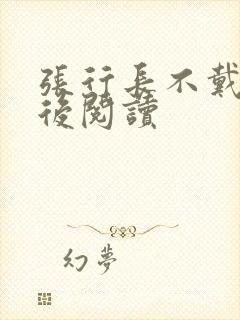 張行長不戴
後閱讀
幻夢